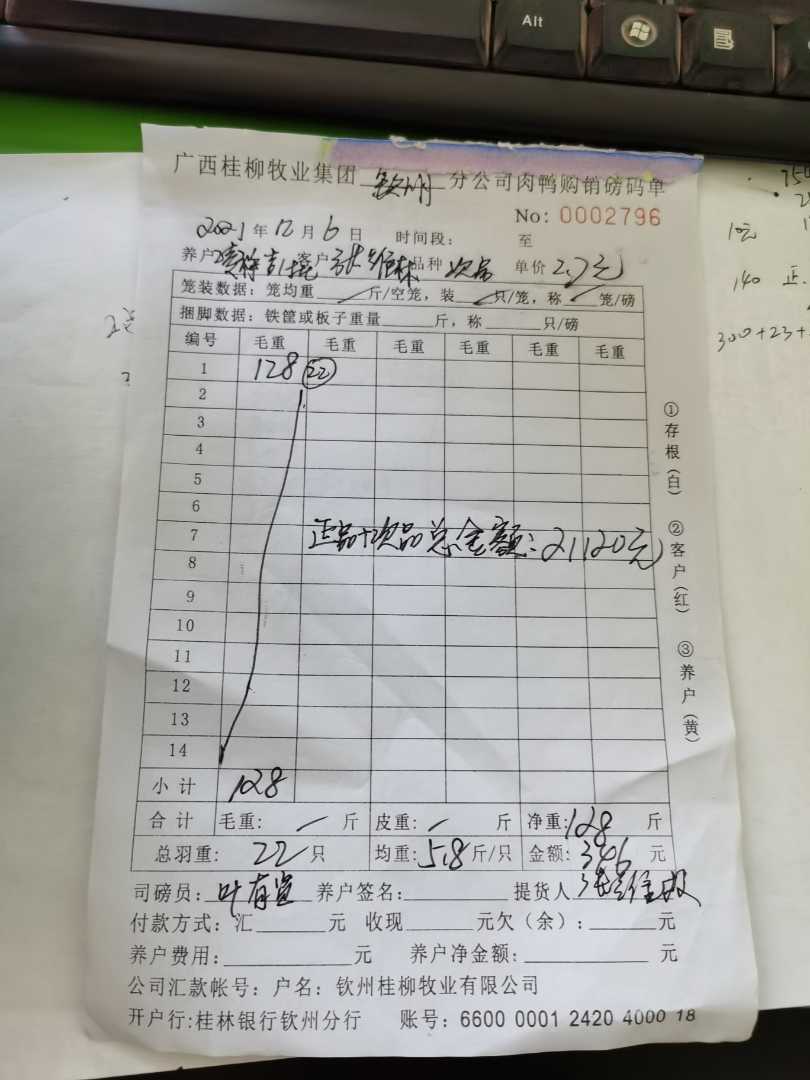 Alt
广西桂柳牧业集团 钦州 分公司肉鸭购销磅码单
No: 0002796
2021年12月6日 时间段: 至
养户 客户 张维林 品种 次品 单价 2.7元
笼装数据: 笼均重 斤/空笼, 装 只/笼, 称 笼/磅
捆脚数据: 铁筐或板子重量 斤, 称 只/磅
编号 毛重 毛重 毛重 毛重 毛重 毛重
1 128 22
2
3
4
5
6
7
正品+次品总金额: 21120元
8
9
10
11
12
13
14
小计 128
合计 毛重: 斤 皮重: 斤 净重: 128 斤
总羽重: 22 只 均重: 5.8 斤/只 金额: 346 元
司磅员: 叶有 养户签名: 提货人
付款方式: 汇 元 收现 元欠(余): 元
养户费用: 元 养户净金额: 元
公司汇款帐号: 户名: 钦州桂柳牧业有限公司
开户行:桂林银行钦州分行 账号: 6600 0001 2420 4000 18
①存根(白) ②客户(红) ③养户(黄)
10元
140 正
300+23+